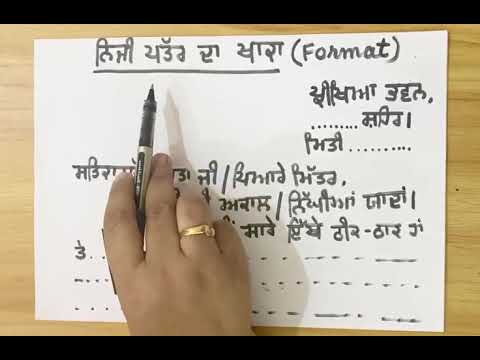 ਨਿਜੀ ਪੱਤਰ ਦਾ ਖਾਕਾ (Format)
ਪ੍ਰੀਖਿਆ ਭਵਨ,
......... ਸ਼ਹਿਰ।
ਮਿਤੀ ..........
ਜੀ / ਪਿਆਰੇ ਮਿੱਤਰ,
ਅਕਾਲ / ਨਿੱਘੀਆਂ ਯਾਦਾਂ।
ਸਾਰੇ ਇੱਥੇ ਠੀਕ-ਠਾਕ ਹਾਂ
ਤੇ